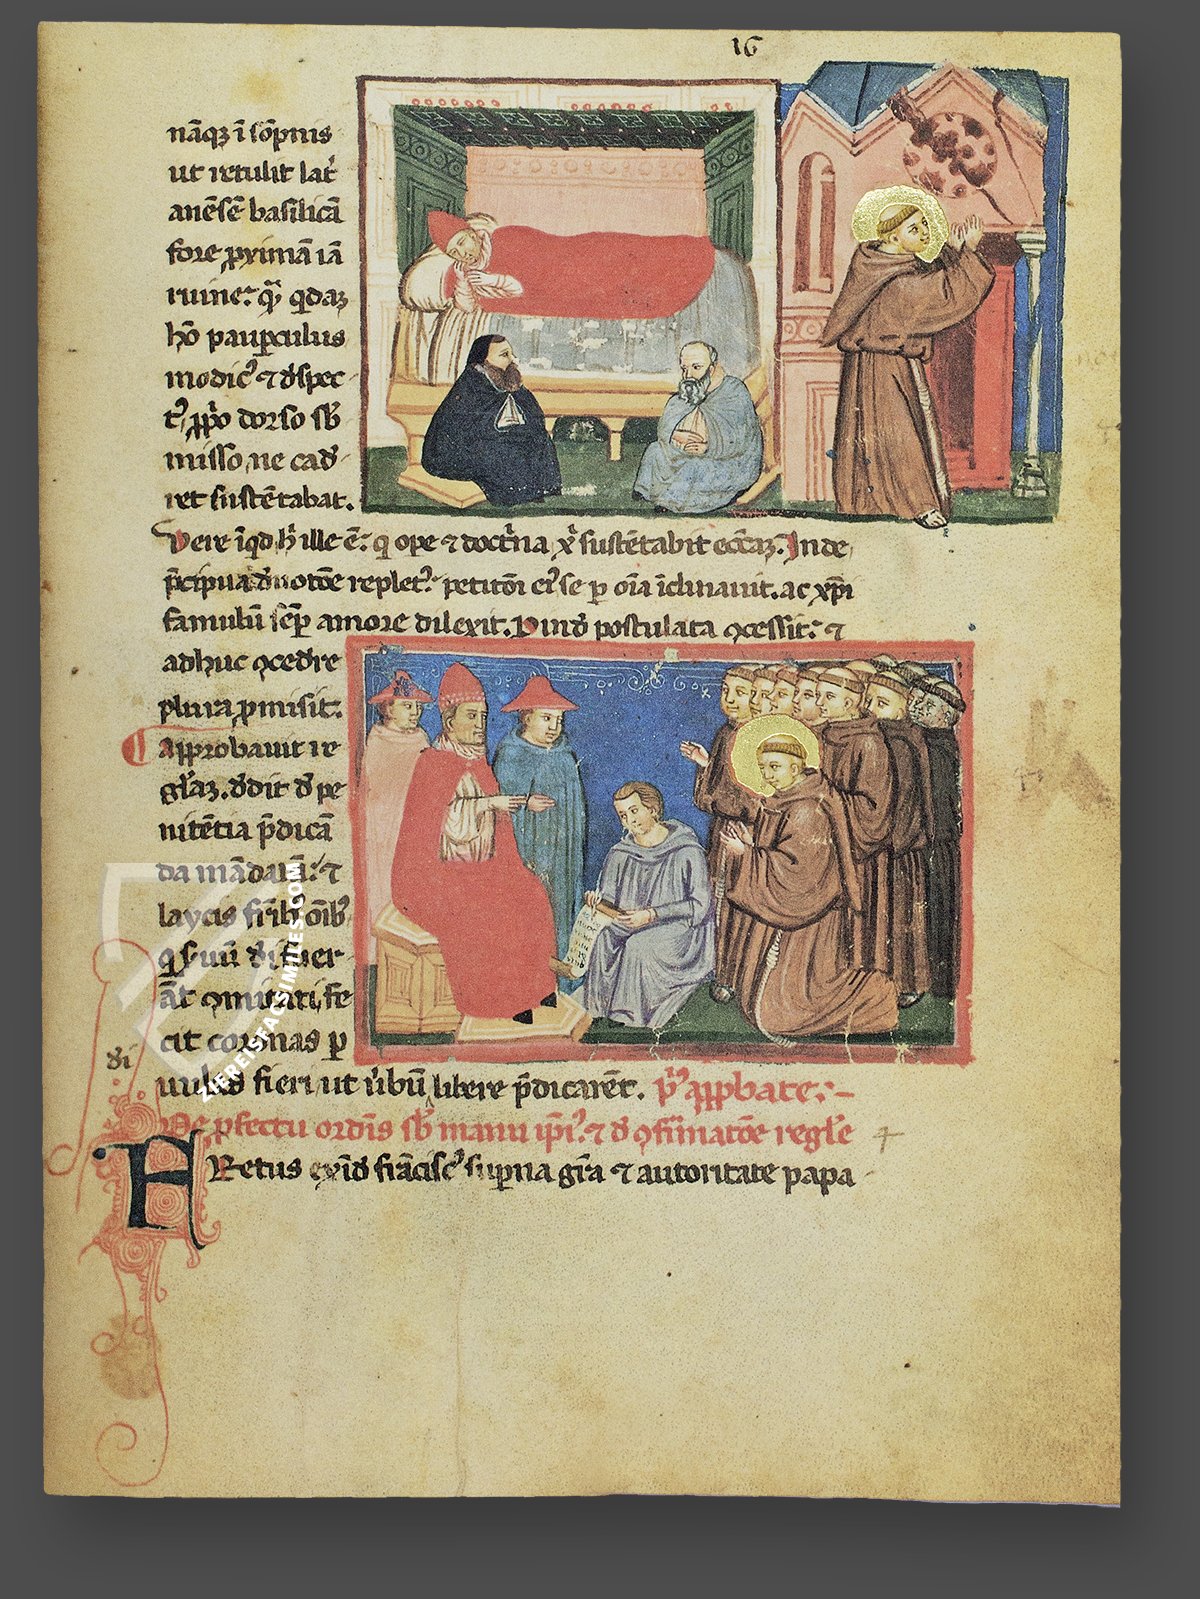 16
nāqꝫ ī sōpnis
ut retulit lat̾
anēsē basilicā
fore ꝓximā iā
ruine: qdaꝫ
hō pauꝑculus
modic᷒ ⁊ dꝭspec
t᷒ ꝓpͥo dorso sb̄
misso, ne cadꝭ
ret sustētabat.
Vere īqd h̾ ille ē: q ope ⁊ doctͥna xͥ sustētabit ecc̄aꝫ. Inde
p̄cipua dꝭuotōe replet᷒. petitōi ei᷒ se ꝑ oīa īclinauit. ac xp̄i
famulū sēꝑ amore dilexit. Dindꝭ postulata ꝯcessit: ⁊
adhuc ꝯcedꝭre
plura ꝓmisit:
approbauit re
gl̄aꝫ. dꝭdit dꝭ pe
nitētia p̄dicā
da mādatū: ⁊
laycis fr̄ib᷒ oīb᷒
q
āt ꝯmitati, fe
cit coronas ꝑ
dꝭi
uulas fieri, ut v̾bū libere p̄dicarēt.
De ꝓfectu ordīs sb̄ manu ip̄i᷒. ⁊ dꝭ ꝯfirmatōe regl̄e
FRetus exīdꝭ frācisc᷒ suꝑna gr̄a ⁊ autoritate papa
ZIEREISFACSIMILES.COM